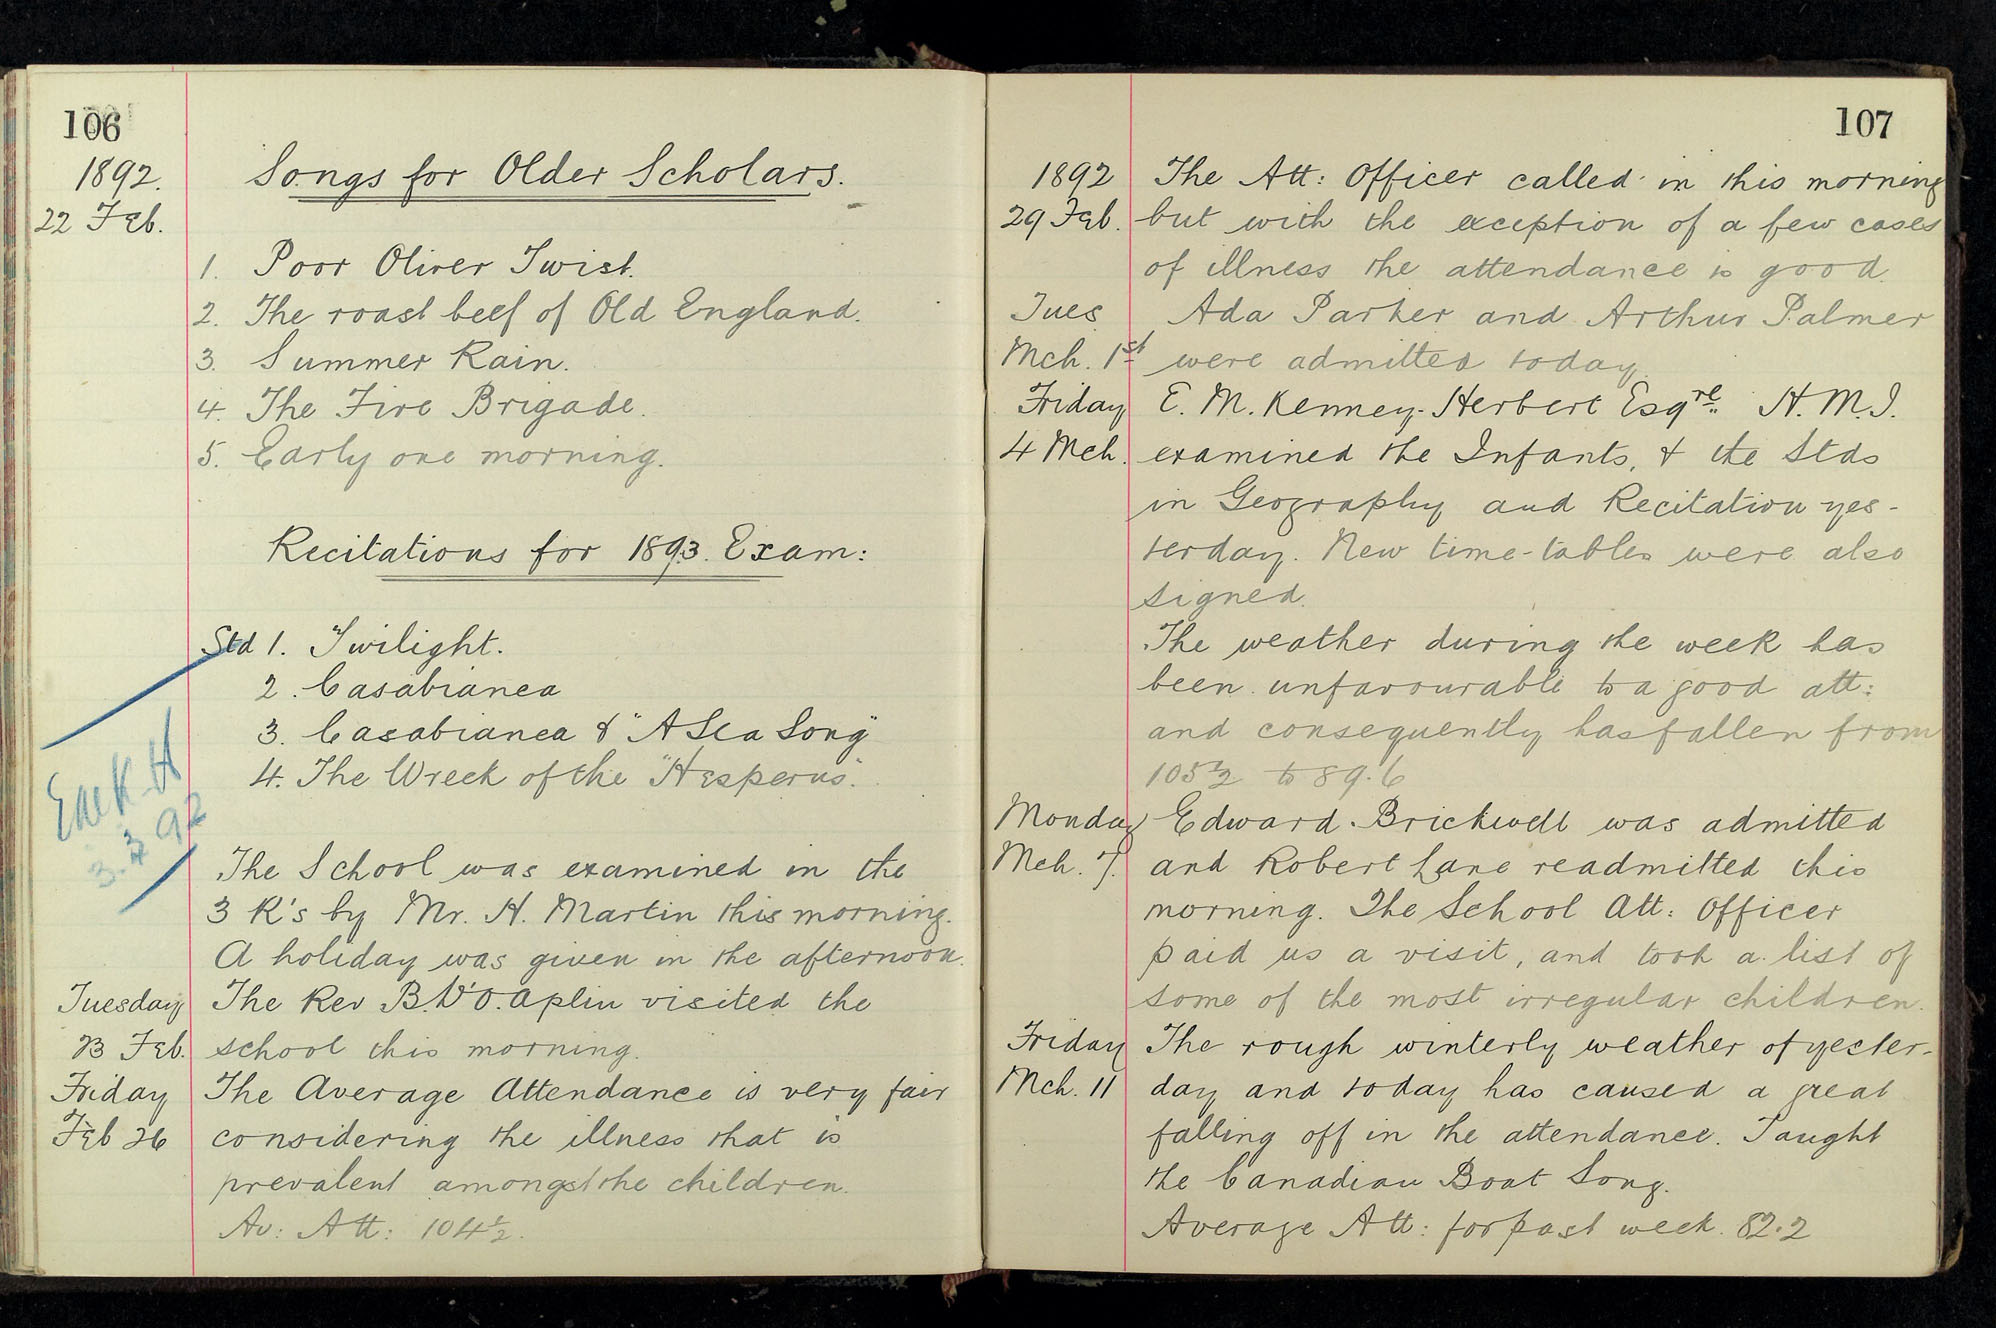 106
1892.
22 Feb.
Songs for Older Scholars.
1. Poor Oliver Twist.
2. The roast beef of Old England.
3. Summer Rain.
4. The Fire Brigade.
5. Early one morning.
Recitations for 1893. Exam:
Std 1. Twilight.
2. Casabianca
3. Casabianca & "A Sea Song"
4. The Wreck of the "Hesperus".
3.3.92
The School was examined in the
3 R's by Mr. H. Martin this morning.
A holiday was given in the afternoon.
Tuesday The Rev B. D'O. Aplin visited the
23 Feb. school this morning.
Friday The Average Attendance is very fair
Feb 26 considering the illness that is
prevalent amongst the children.
Av: Att: 104½.
107
1892 The Att: Officer called in this morning
29 Feb. but with the exception of a few cases
of illness the attendance is good.
Tues Ada Parker and Arthur Palmer
Mch. 1st were admitted today.
Friday E. M. Kenney-Herbert Esqre. H.M.I.
4 Mch. examined the Infants, & the Stds
in Geography and Recitation yes-
terday. New time-tables were also
signed.
The weather during the week has
been unfavourable to a good att:
and consequently has fallen from
105½ to 89.6
Monday Edward Brickwell was admitted
Mch. 7. and Robert Lane readmitted this
morning. The School Att: Officer
paid us a visit, and took a list of
some of the most irregular children.
Friday The rough winterly weather of yester-
Mch. 11 day and today has caused a great
falling off in the attendance. Taught
the Canadian Boat Song.
Average Att: for past week. 82.2